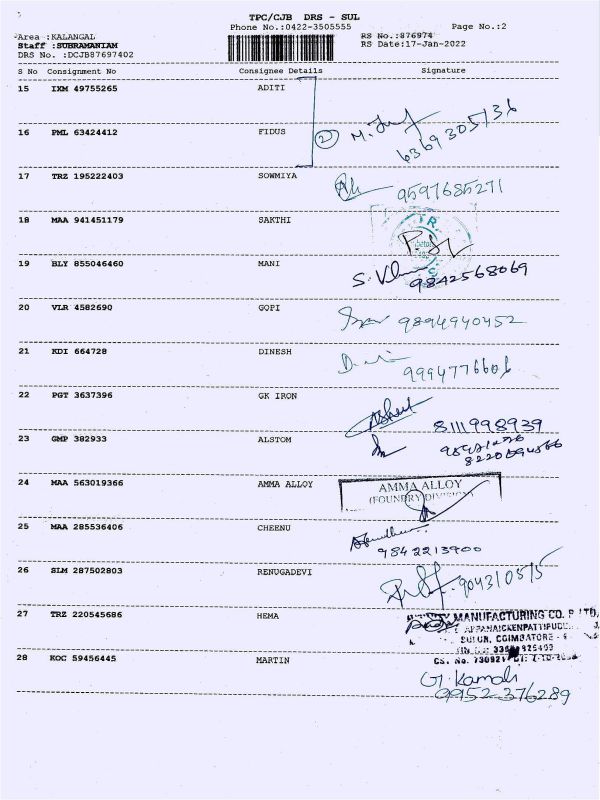 TPC/CJB DRS - SUL
Phone No.:0422-3505555 Page No.:2
Area :KALANGAL RS No.:876974
Staff :SUBRAMANIAM RS Date:17-Jan-2022
DRS No. :DCJB87697402
S No Consignment No Consignee Details Signature
15 IXM 49755265 ADITI
16 PML 63424412 FIDUS
2 M. 6369305136
17 TRZ 195222403 SOWMIYA
9597685271
18 MAA 941451179 SAKTHI
19 BLY 855046460 MANI
S. 9842568069
20 VLR 4582690 GOPI
9894940452
21 KDI 664728 DINESH
9994776606
22 PGT 3637396 GK IRON
8111998939
23 GMP 382933 ALSTOM
24 MAA 563019366 AMMA ALLOY
AMMA ALLOY
(FOUNDRY DIVISION)
25 MAA 285536406 CHEENU
9842213900
26 SLM 287502803 RENUGADEVI
27 TRZ 220545686 HEMA
MANUFACTURING CO. P LTD,
SULUR, COIMBATORE -
28 KOC 59456445 MARTIN
G. Kamali
9952376289